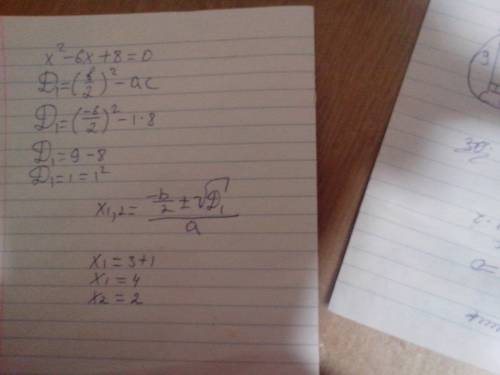 x² - 6x + 8 = 0
D₁ = (b/2)² - ac
D₁ = (-6/2)² - 1·8
D₁ = 9 - 8
D₁ = 1 = 1²
x₁,₂ = (-b/2 ± √D₁)/a
x₁ = 3+1
x₁ = 4
x₂ = 2
3